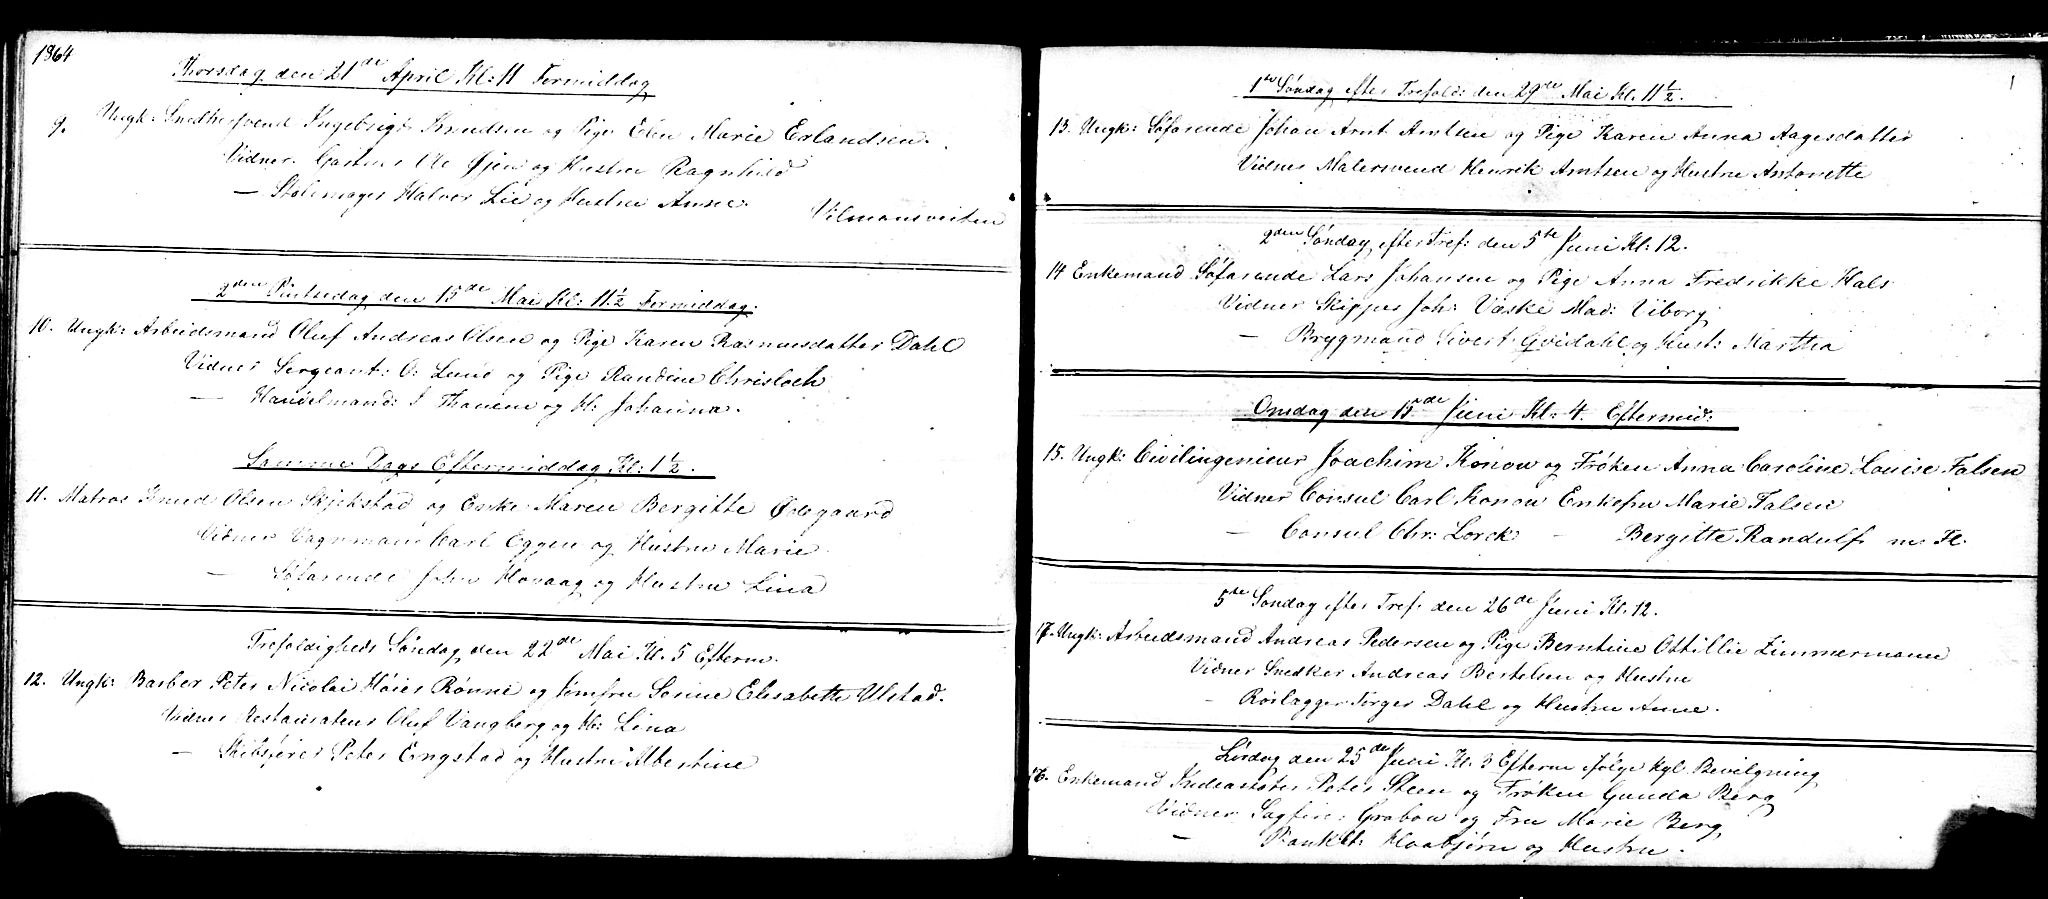 1864
Thorsdag den 21de April Kl: 11 Formiddag
9. Ungk: Snedkersvend Ingebrigt Knudsen og Pige Elen Marie Erlandsen.
Vidner. Ole Øien og Hustru Ragnhild
— Stolemager Halvor Lie og Hustru Anne. Vilmansveiten
2den Pintsedag den 15de Mai Kl: 11 1/2 Formiddag.
10. Ungk: Arbeidsmand Oluf Andreas Olsen og Pige Karen Rasmusdatter Dahl
Vidner Sergeant: O: Lund og Pige Randine Chrisloch
— Handelmand: I Thanem og H: Johanna.
Samme Dags Eftermiddag Kl: 1 1/2.
11. Matros Knud Olsen Skjekstad og Enke Maren Bergitte Ødegaard
Vidner Vognmand Carl Eggen og Hustru Marie
— Søfarende John Hovaag og Hustru Lina
Trefoldigheds Søndag den 22de Mai Kl. 5 Efterm.
12. Ungk: Barber Peter Nicolai Høier Rønne og Jomfru Sorine Elisabeth Ulstad.
Vidner Restaurateur Oluf Vangberg og H: Lina
— Peter Engstad og Hustru Albertine
1
1te Søndag efter Trefold: den 29de Mai Kl. 11 1/2.
13. Ungk: Søfarende Johan Arnt Arntsen og Pige Karen Anna Aagesdatter
Vidner Malersvend Henrik Arntsen og Hustru Antonette
2den Søndag efter Tref: den 5te Juni Kl: 12.
14 Enkemand Søfarende Lars Johansen og Pige Anna Fredrikke Hals
Vidner Skipper Joh: Væske Mad: Viborg
— Brygmand Sivert Qvidahl og Hust: Martha
Onsdag den 15de Juni Kl: 4. Eftermid:
15. Ungk: Civilingenieur Joachim Konow og Frøken Anna Caroline Louise Falsen
Vidner Consul Carl Konow Enkefru Marie Falsen
— Consul Chr: Lorck — Bergitte Randulf m: Fl.
5te Søndag efter Tref: den 26de Juni Kl. 12.
17. Ungk: Arbeidsmand Andreas Pedersen og Pige Berntine Ottillie Zimmermann
Vidner Snedker Andreas Bertelsen og Hustru
— Rørlægger Torger Dahl og Hustru Anne.
Lørdag den 25de Juni Kl. 3 Efterm ifølge Kgl Bevilgning
16. Enkemand Peter Steen og Frøken Gunda Berg
Vidner Sagfør: Grabow og Fru Marie Berg
— Hoabjørn og Hustru.